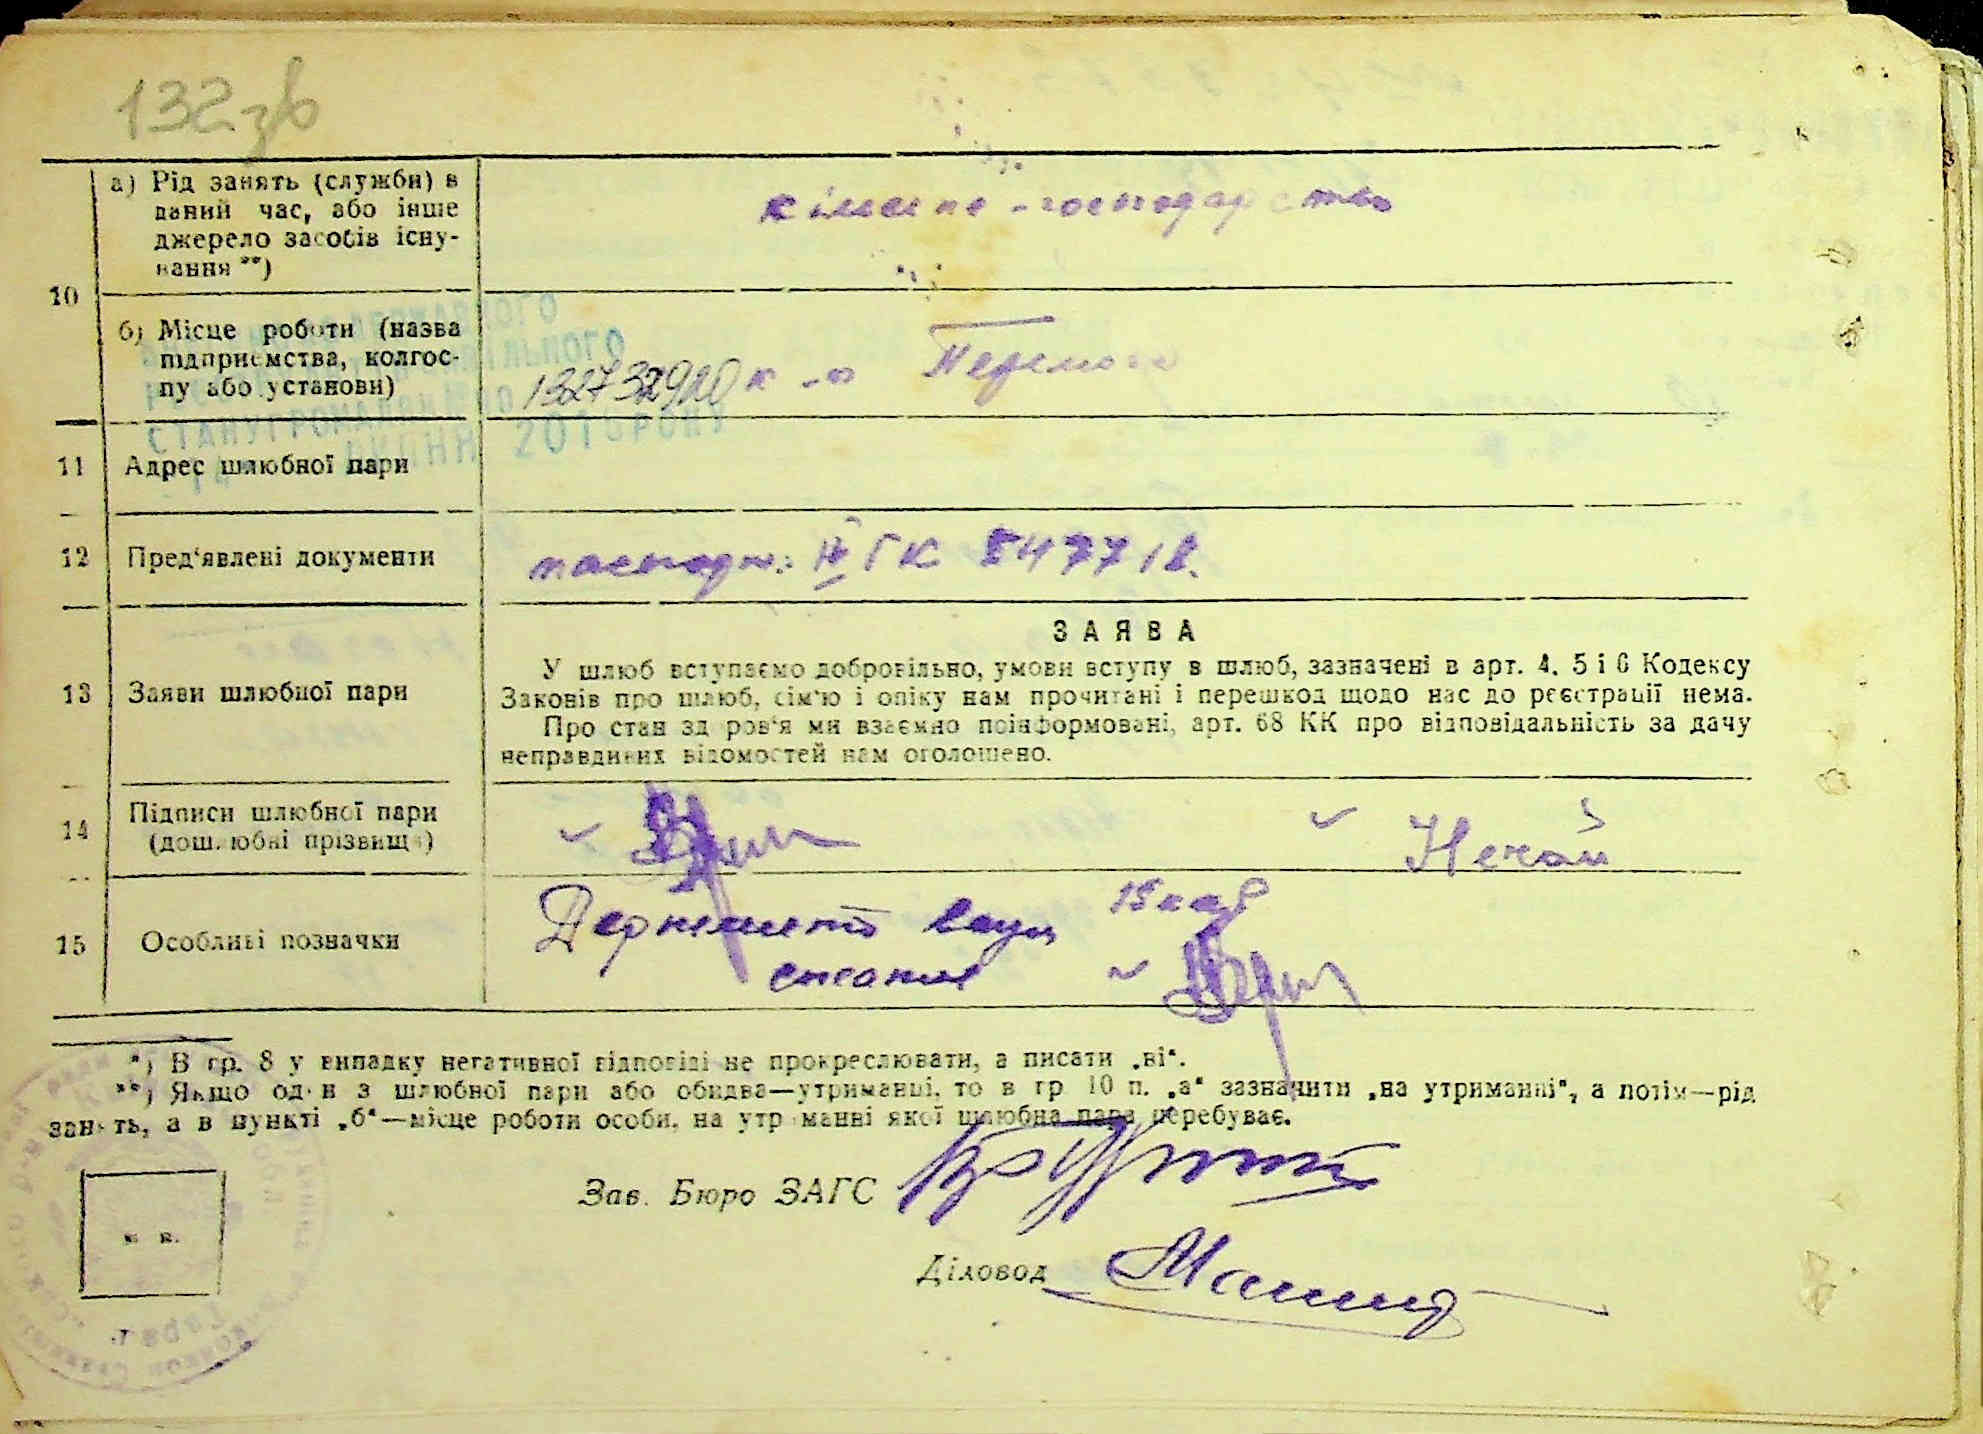 132 зв
а) Рід занять (служби) в
даний час, або інше
джерело засобів існу-
вання **)
10
б) Місце роботи (назва
підприємства, колгос-
пу або установи)
к-п Перемога
11 Адрес шлюбної пари
12 Пред'явлені документи
паспорт: ІІ ГК 847718.
ЗАЯВА
13 Заяви шлюбної пари
У шлюб вступаємо добровільно, умови вступу в шлюб, зазначені в арт. 4. 5 і 6 Кодексу
Законів про шлюб, сім'ю і опіку нам прочитані і перешкод щодо нас до реєстрації нема.
Про стан здоров'я ми взаємно поінформовані, арт. 68 КК про відповідальність за дачу
неправдивих відомостей нам оголошено.
14 Підписи шлюбної пари
(дошлюбні прізвища)
Нечай
15 Особливі позначки
*) В гр. 8 у випадку негативної відповіді не прокреслювати, а писати „ні“.
**) Якщо один з шлюбної пари або обидва—утриманці, то в гр 10 п. „а“ зазначити „на утриманні“, а потім—рід
занять, а в пункті „б“—місце роботи особи, на утриманні якої шлюбна пара перебуває.
Зав. Бюро ЗАГС
Діловод
м. п.